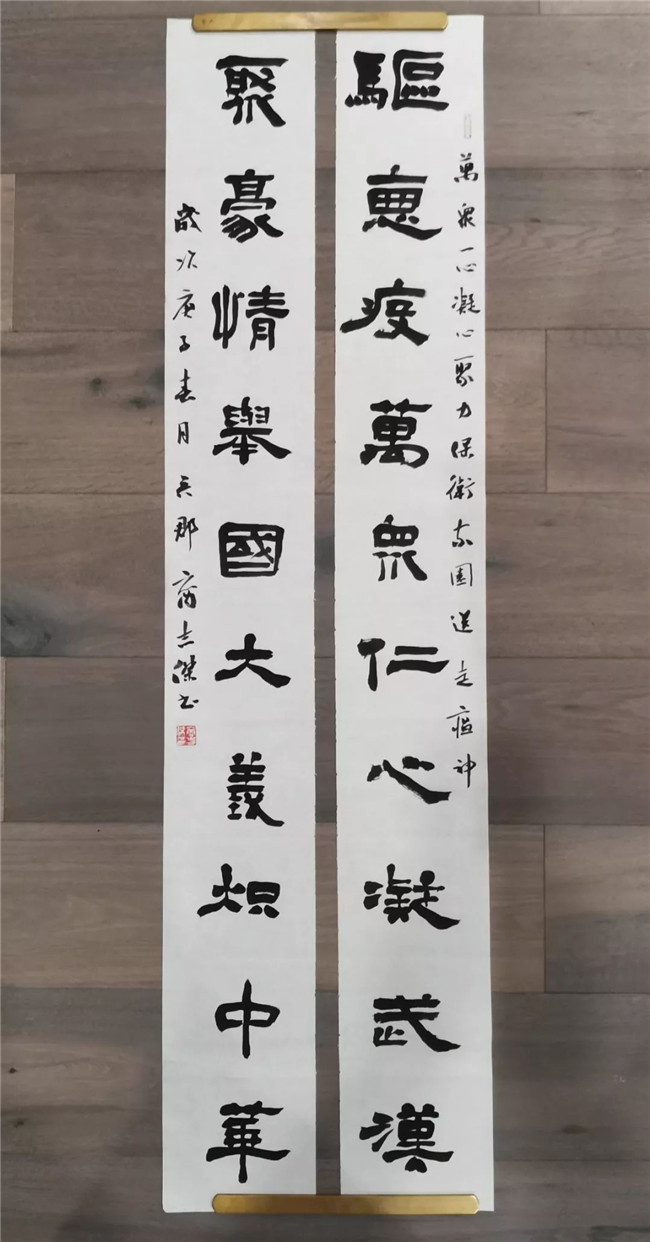 萬衆一心凝心聚力保衛家園送走瘟神
驅惡疫萬衆仁心凝武漢
聚豪情舉國大義炽中華
歲次庚子春月傑书